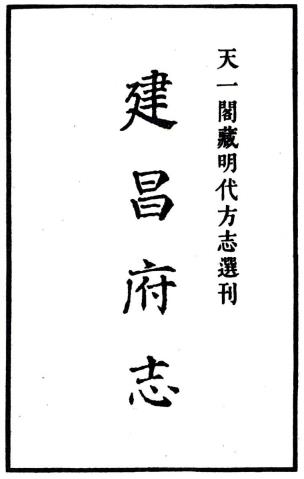 天一閣藏明代方志選刊
建昌府志